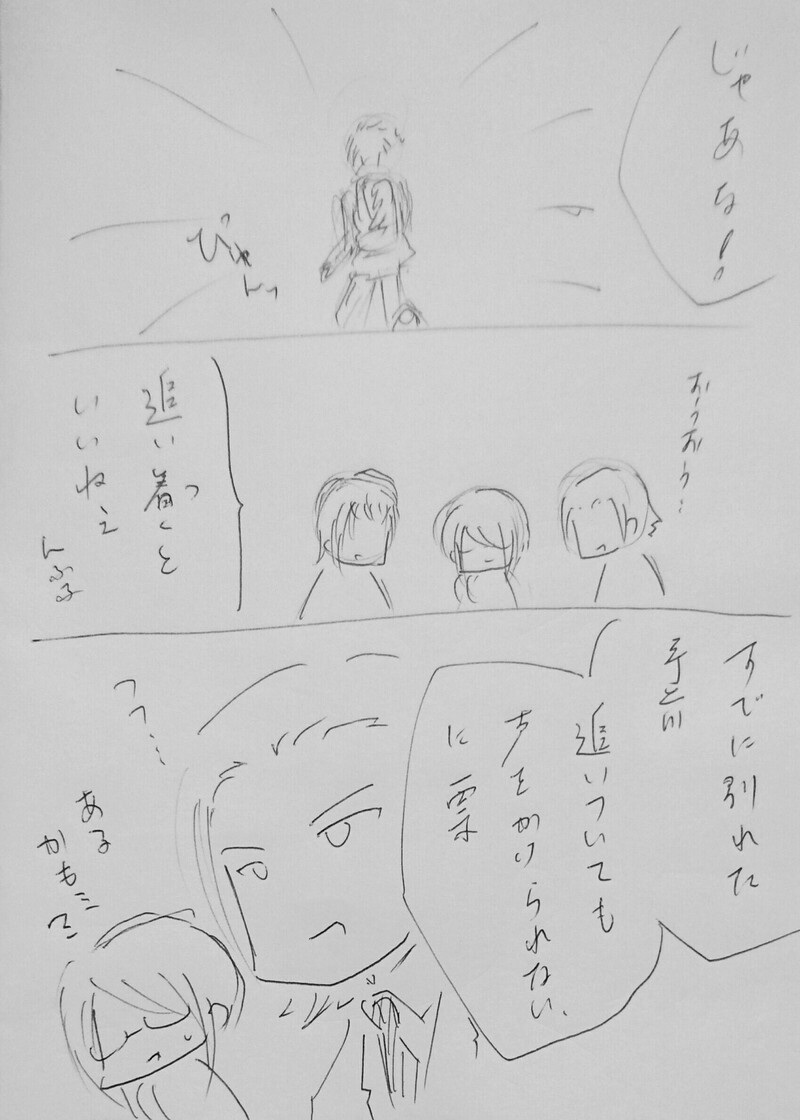 じゃあな！
ぴゃっ
おうおう…
追い着くと
いいねぇ
すでに別れた
追いついても
声をかけられない、
に一票
フフ…
ある
かも…